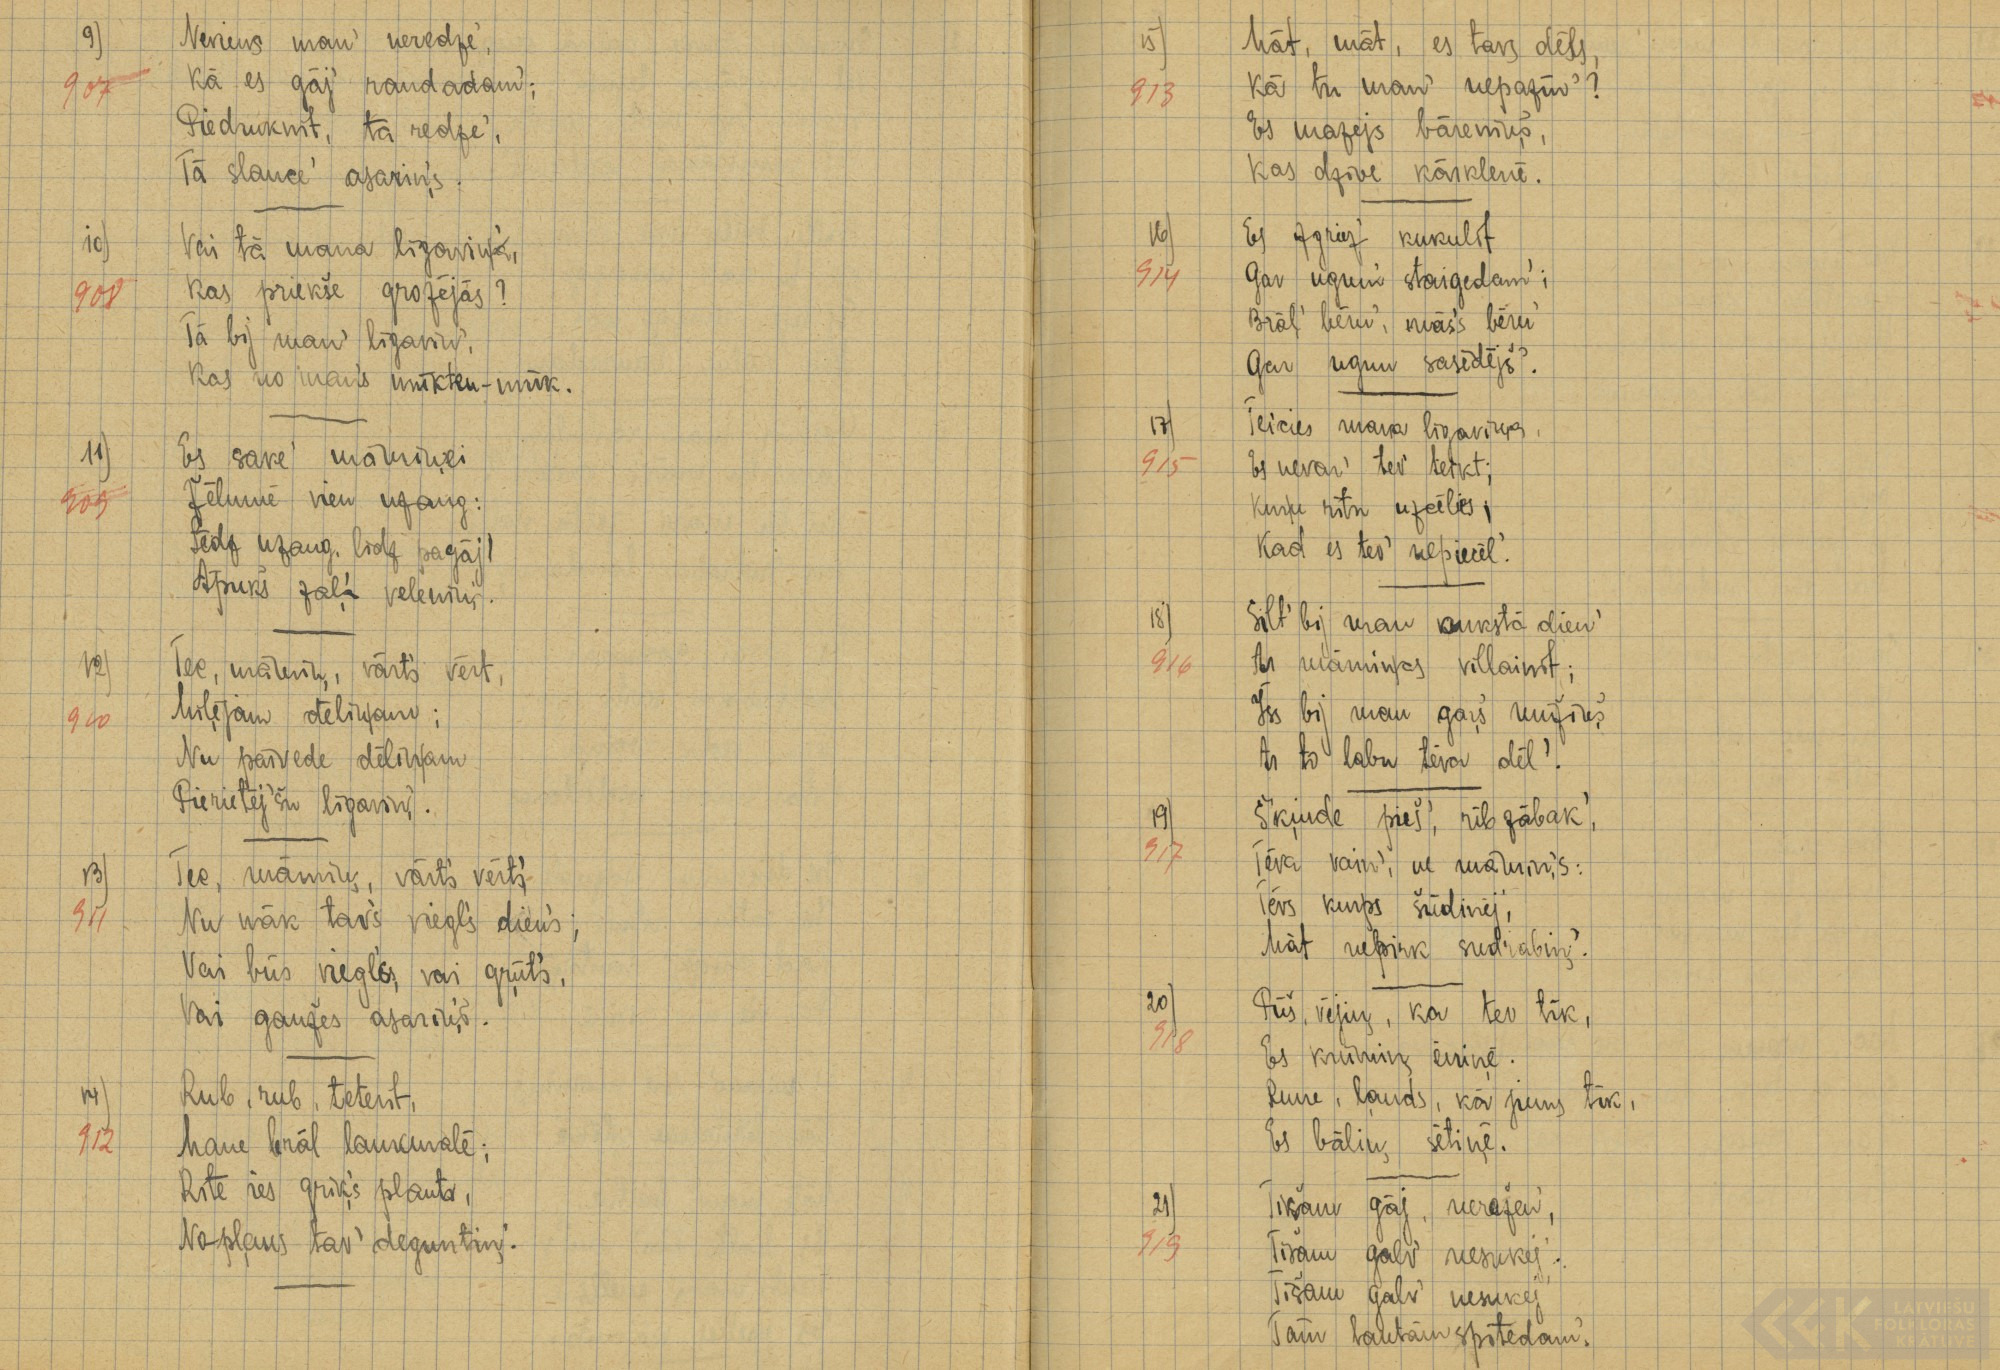 9)
907
Neviens man' neredze',
Kā es gāj' raudadam';
Piedruknīt, tā redze',
Tā slauce' asariņs.
10)
908
Vai tā mana līgaviņa,
Kas priekše grozējās?
Tā bij man' līgaviņ',
Kas no man's mūktu-mūk.
11)
909
Es sake' māmiņei
Žēlumē vien uzaug:
Sēdz uzaug, līdz pagāj'
Apukš zaļa velēniņ'.
12)
910
Tec, māmiņ, vārts vērt,
Mīļējam dēliņam;
Nu pārvede dēliņam
Pierietēj'šu līgaviņ'.
13)
911
Tec, māmiņ, vārts vērts
Nu nāk tav's viegl's dien's;
Vai būs viegl's, vai grūt's,
Vai gaužes asariņš.
14)
912
Rub, rub, teterīt,
Mane brāl laukmalē;
Rīte ies griķ's plaut,
Noplaus tav' deguntiņ'.
15)
913
Māt, māt, es tavs dēls,
Kā tu man' nepazin'?
Es mazejs bāreniņš,
Kas dzīve kārklenē.
16)
914
Es zgriez' kukulīt
Gar ugun' staigedam';
Brāļ' bērn', mās's bērn'
Gar ugun sasēdējš'.
17)
915
Teicies mana līgaviņa,
Es nevar' tev' teikt;
Kuŗu rītu uzcēlies,
Kad es tev' nepiecēl'.
18)
916
Silt' bij man aukstā dien'
Ar māmiņas villainīt;
Īss bij man gaŗš mūžiņš
Ar to labu tēva dēl'.
19)
917
Šķinde pieš', rīb zābak',
Tēva vain', ne māmiņ's:
Tēvs kurps šūdinēj',
Māt nepirk sudrabiņ'.
20)
918
Pūš, vējiņ, ka tev tīk,
Es krūmiņ ēniņē.
Rune, ļauds, kā jums tīk,
Es bāliņ sētiņē.
21)
919
Tīšam gāj, nerazen',
Tīšam galv' nesukēj'.
Tīšam galv' nesukēj'
Tam tautam spītedam'.
LATVIEŠU
FOLKLORAS
KRĀTUVE